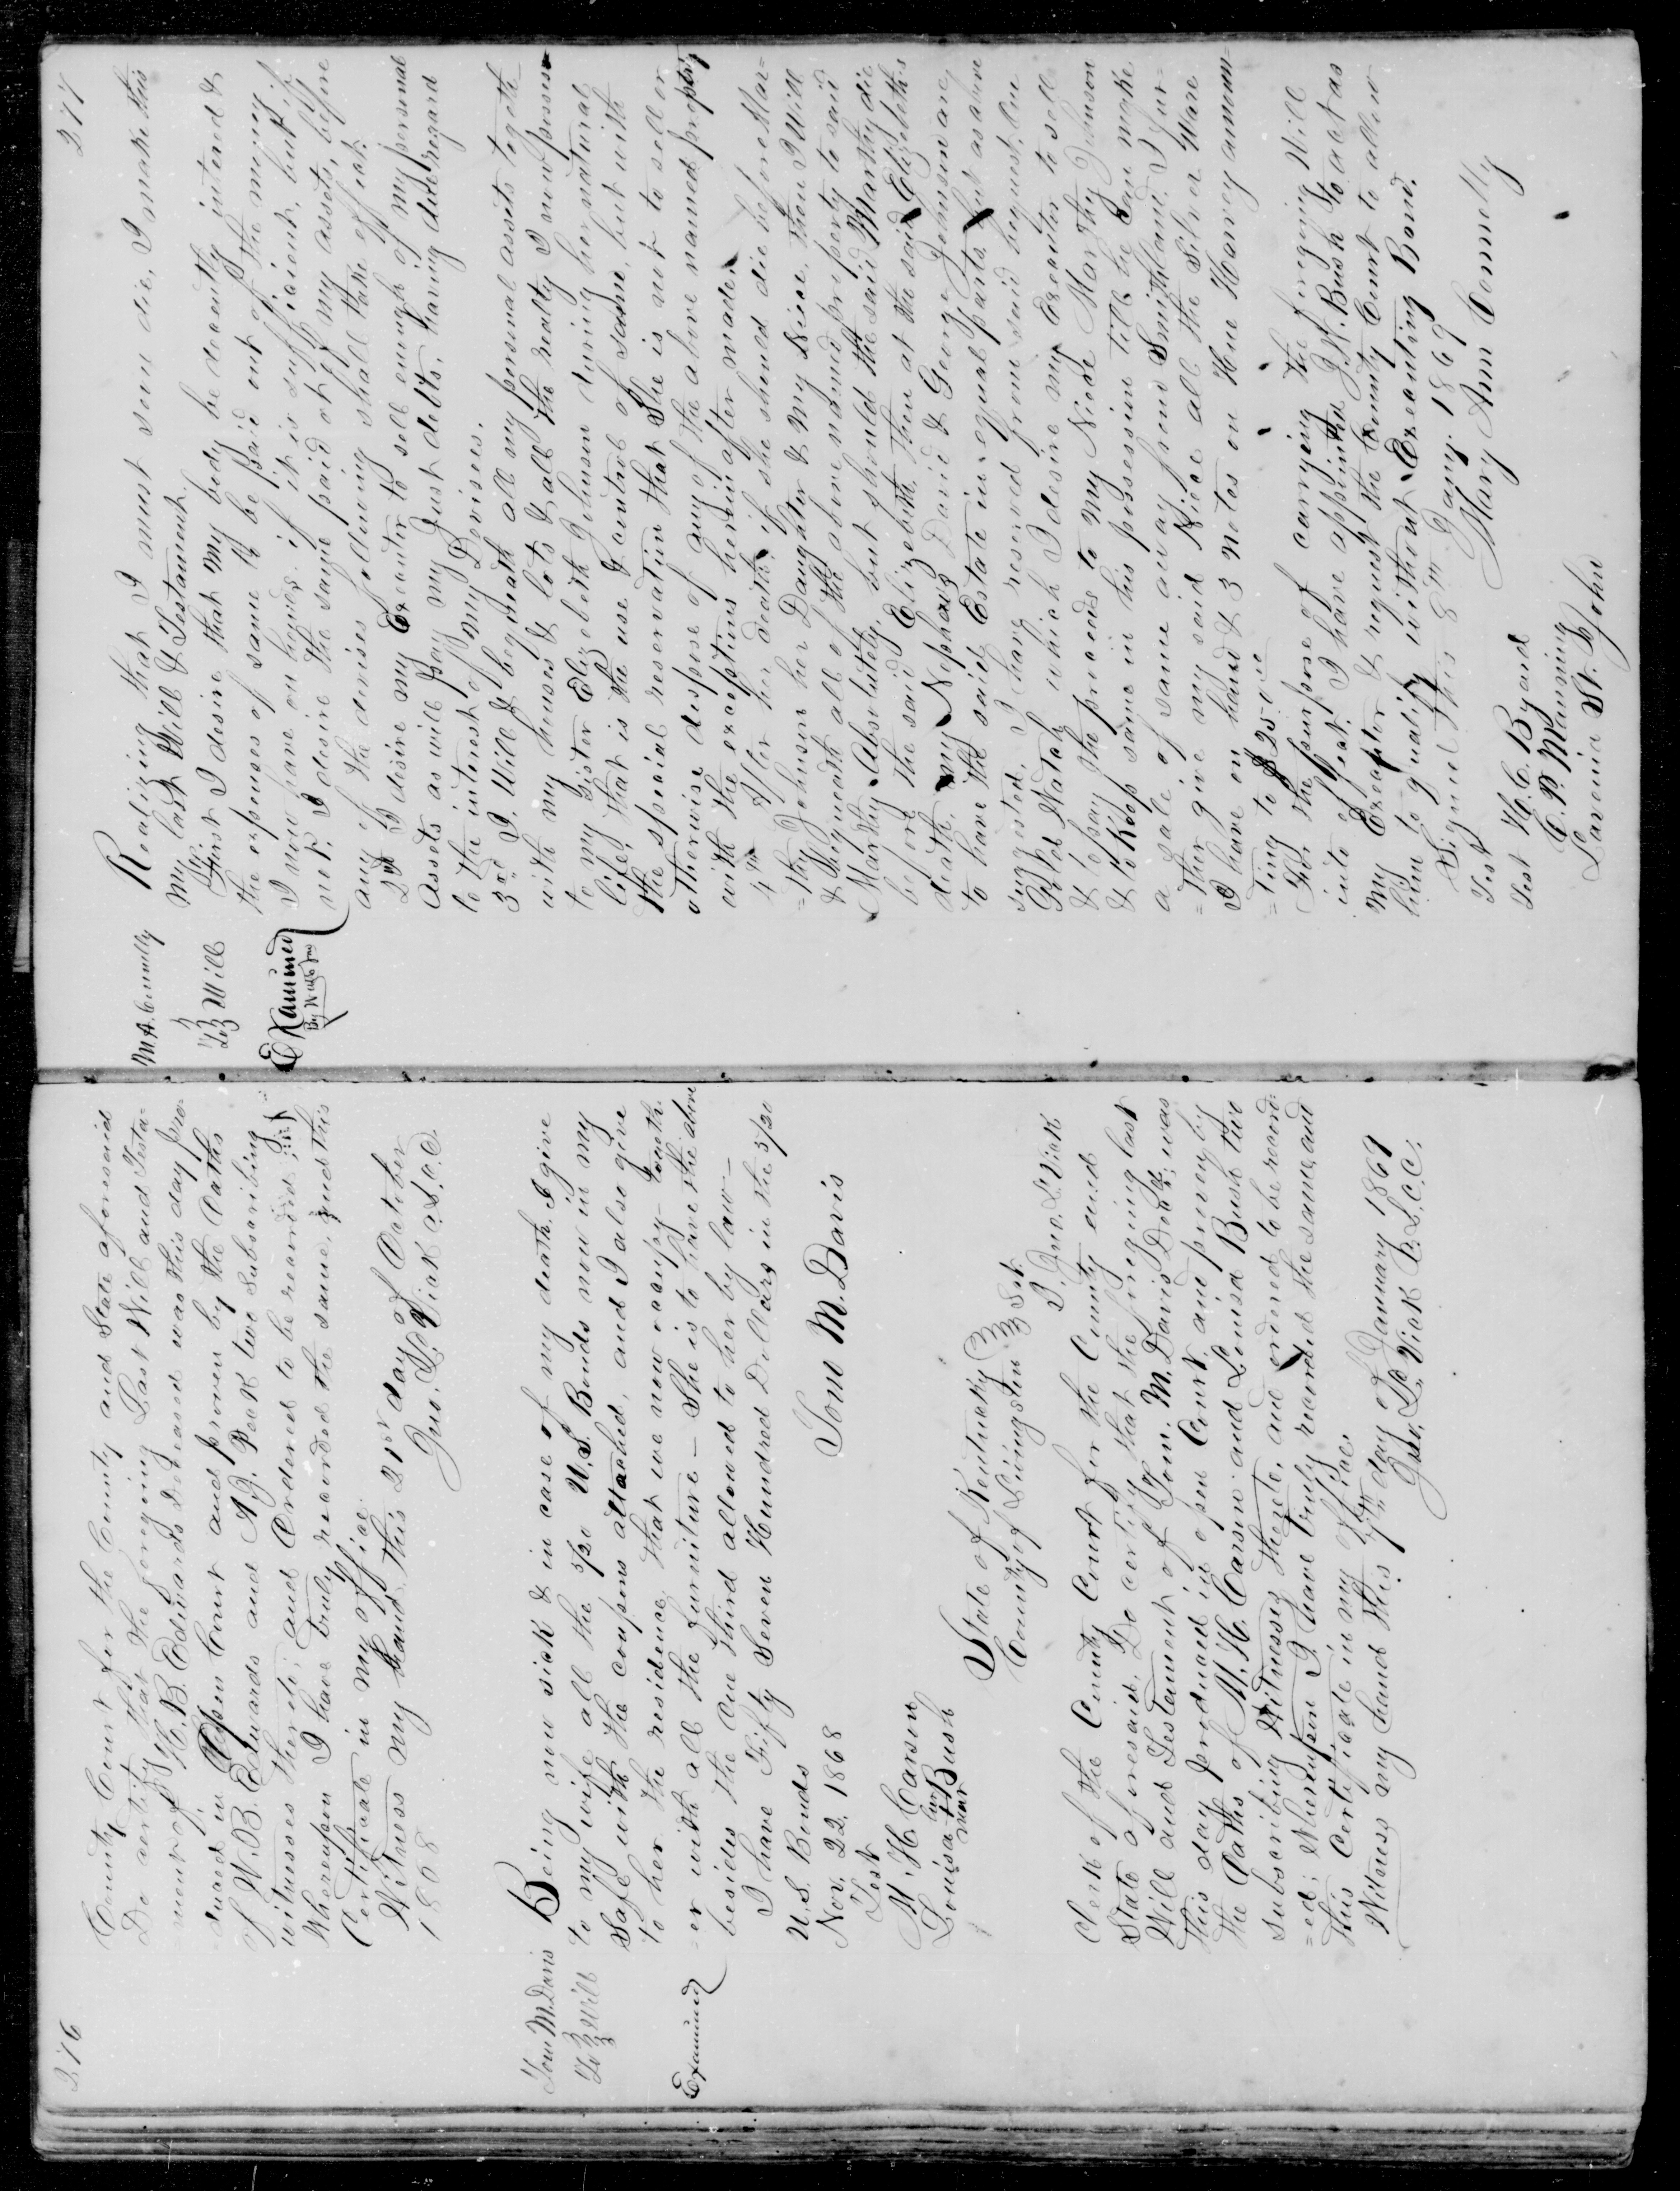 276
County Court for the County and State aforesaid
Do certify that the foregoing Last Will and Testa-
ment of H. B. Edwards Deceased was this day pro-
duced in Open Court and proven by the Oaths
of W. B. Edwards and A. J. Peck two Subscribing
witnesses thereto; and Ordered to be recorded;
Whereupon I have truly recorded the same, and this
Certificate in my office.
Witness my hand this 21st day of October
1868
Jno. L. Vick C.L.C.C.
Tom M. Davis
To } Will
Examined
Being now sick & in case of my death, I give
to my wife all the 5/20 U.S. Bonds now in my
Safe with the coupons attached, and I also give
to her the residence that we now occupy - togeth-
er with all the furniture - She is to have the above
besides the One third allowed to her by law -
I have Fifty Seven Hundred Dollars in the 5/20
U.S. Bonds
Nov. 22. 1868
Tom M. Davis
Test
M. H. Carson
Louisa her + mar Bush
State of Kentucky }
County of Livingston } Sct.
I, Jno. L. Vick
Clerk of the County Court for the County and
State aforesaid, Do certify that the foregoing last
Will and Testament of Tom. M. Davis Decd; was
this day produced in open Court, and proven by
the Oaths of M. H. Carson and Louisa Bush two
subscribing Witnesses thereto, and ordered to be record-
=ed; Whereupon I have truly recorded the same, and
this Certificate in my office.
Witness my hand this 7th day of January 1869
Jno. L. Vick C.L.C.C.
277
M. A. Connelly
To } Will
Examined
Realizing that I must soon die, I make this
my last Will & Testament.
First I desire that my body be decently intered &
the expenses of same to be paid out of the money
I now have on hand, if it is sufficient, but if
not, I desire the same paid of my assets, before
any of the devises following shall take effect.
2nd I desire my Executor to sell enough of my personal
Assets as will pay my Just debts, having due regard
to the interest of my Devisees.
3rd I Will & bequeath all my personal assets togeth
with my houses & lots & all the realty I now possess
to my Sister Elizebeth Johnson during her natural
life, that is the use & control of same, but with
the special reservation that She is not to sell or
otherwise dispose of any of the above named property
with the exceptions herein after made.
4th After her death, if she should die before Mar=
=thy Johnson her Daughter & my Niece, then I Will
& Bequeath all of the above named property to said
Marthy Absolutely, but should the said Marthy die
before the said Elizebeth, then at the said Elizebeths
death, my Nephews David & George Johnson are
to have the said Estate in equal parts, but as above
sugested, I have reserved from said bequest, One
Gold Watch which I desire my Executor to sell
& to pay the proceeds to my Niece Marthy Johnson
& to Keep same in his possession till he can make
a sale of same away from Smithland. I fur-
=ther give my said Niece all the Silver Ware
I have on hand & 3 notes on Hue Harvey amoun-
=ting to $250.00
For the purpose of carrying the foregoing Will
into effect, I have appointed J. N. Bush to act as
my Executor & request the County Court to allow
him to qualify without Executing Bond.
Signed this 8th Jany. 1869
Mary Ann Connelly
Test H. C. Byard
Test C. P. Manning
Lavenia St. John